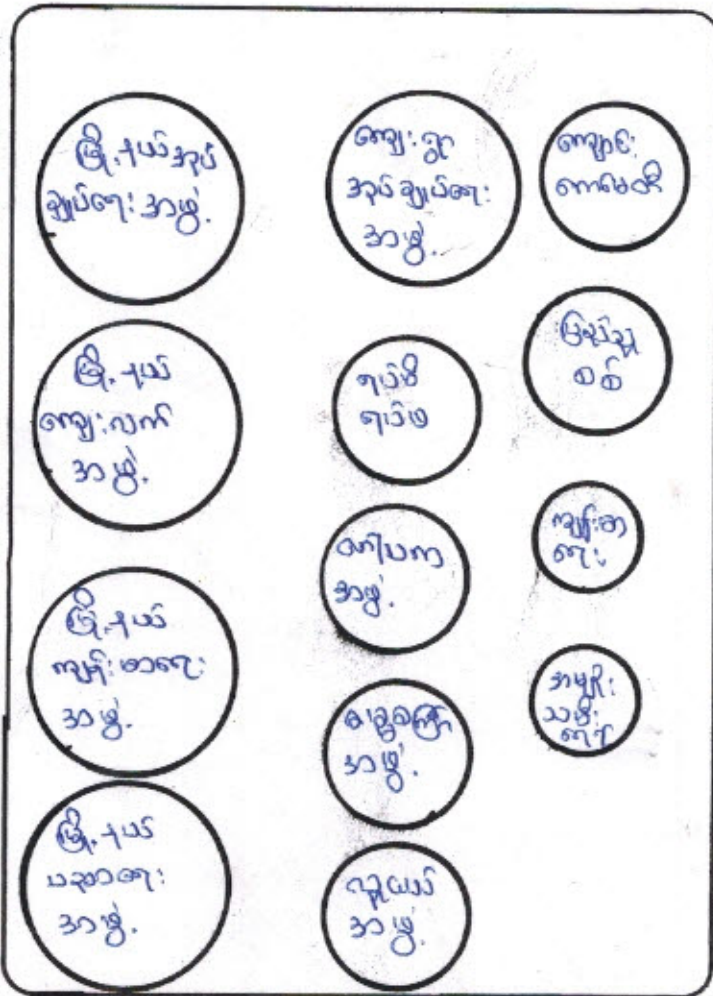 မြို့နယ်အုပ်
ချုပ်ရေးအဖွဲ့.
မြို့နယ်
ကျေးလက်
အဖွဲ့.
မြို့နယ်
ကျန်းမာရေး
အဖွဲ့.
မြို့နယ်
ပညာရေး
အဖွဲ့.
ကျေးရွာ
အုပ်ချုပ်ရေး
အဖွဲ့.
ရပ်မိ
ရပ်ဖ
အဖွဲ့.
အဖွဲ့.
လူငယ်
အဖွဲ့.
ကျောင်း
ကော်မတီ
ပြည်သူ့
စစ်
ကျန်းမာ
ရေး
အမျိုး
သမီး
ရေးရာ